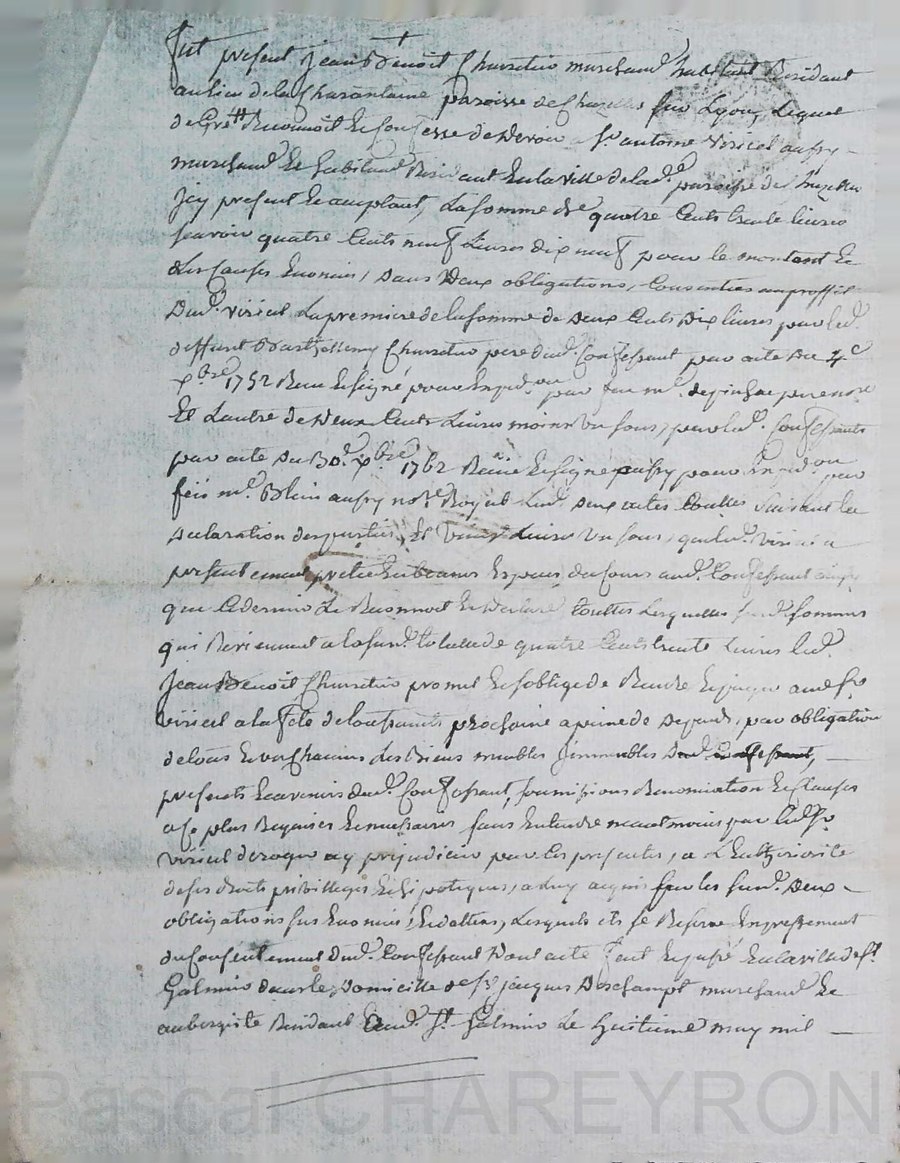 fut présent Jean Benoit Charretier marchand habitant Résidant
au lieu de la Charantaine paroisse de Chazelles sur Lyon, Lequel
de Gré Reconnoit Et confesse de devoir a Sr antoine Viricel aufry
marchand Et habitant Résidant En la ville de lad. paroisse de Chazelles
Icy present Et acceptant, La somme de quatre Cents trente livres
scavoir quatre Cents neuf Livres dix neuf pour le montant Et
des causes Enoncées, dans Deux obligations, Consenties au proffit
Dud. viricel La premiere de la somme de Deux Cents Dix livres par led.
deffunt Barthellemy Charretier pere dud. Confessant par acte du 4e
xbre 1752 Reçu Et signé par feu me. notre
Et Lautre de Deux Cents Livres moins Un sous, par led. Confessant
par acte du 30e xbre 1762 Reçu Et signé par
feü me. Blein aufry nore Royal Lesd. Deux actes Suivant la
declaration des parties, Et vingt Livres Un sous, que led. Viricel a
presentement En Especes du Cours aud. Confessant ainsy
que Ce dernier Le Reconnoit Et declare Touttes Lesquelles susd. sommes
qui Reviennent a la susd. totalle de quatre Cents trente Livres led.
Jean Benoit Charretier promet Et s'oblige de Rendre Et payer aud. Sr
Viricel a la fete de la toussaints prochaine a peine de Depends, par obligation
de tous Et un Chacuns Ses Biens meubles Immeubles
presents Et avenirs dud. Confessant, soumissions Renonciation Et Clauses
a ce plus Requises Et necessaires sans Entendre neantmoins par led. Sr
Viricel deroger ny prejudicier par les presentes, a L'anteriorité
de ses droits privilleges Et hipoteques, a Luy acquis sur les susd. Deux
obligations sus Enoncées Lesquels il se Reserve Expressement
du Consentement Dud. Confessant Dont acte fait Et passé En la ville de St
Galmier dans le Domicille de Sr Jacques Deschampt marchand Et
aubergiste Residant Aud. St Galmier Le huitieme may mil
Pascal CHAREYRON